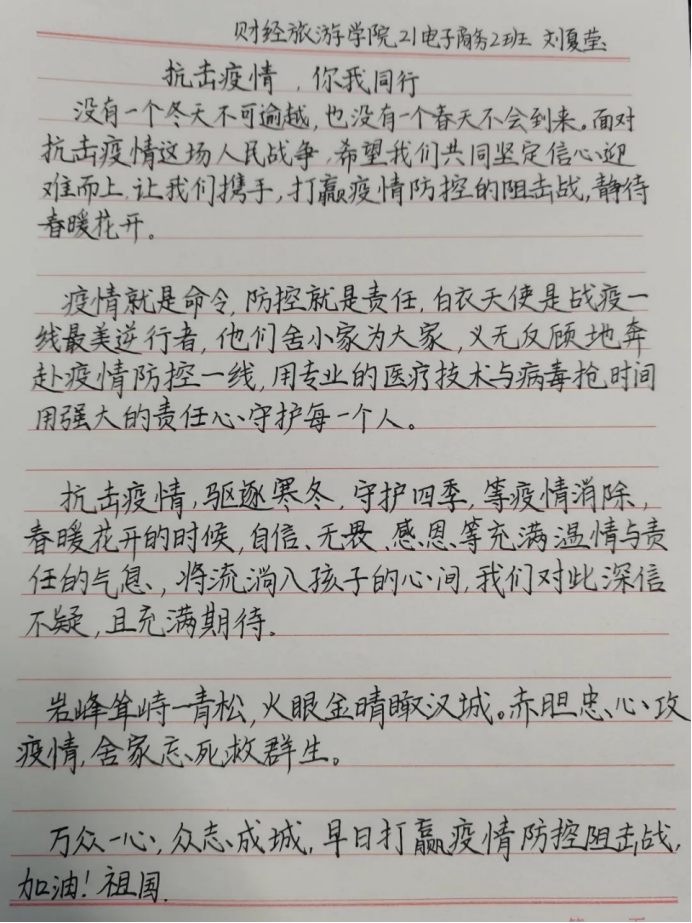 财经旅游学院21电子商务2班 刘夏莹
抗击疫情，你我同行
没有一个冬天不可逾越，也没有一个春天不会到来。面对
抗击疫情这场人民战争，希望我们共同坚定信心迎
难而上，让我们携手，打赢疫情防控的阻击战，静待
春暖花开。
疫情就是命令，防控就是责任，白衣天使是战疫一
线最美逆行者，他们舍小家为大家，义无反顾地奔
赴疫情防控一线，用专业的医疗技术与病毒抢时间
用强大的责任心守护每一个人。
抗击疫情，驱逐寒冬，守护四季，等疫情消除，
春暖花开的时候，自信、无畏、感恩等充满温情与责
任的气息，将流淌入孩子的心间，我们对此深信
不疑，且充满期待。
岩峰耸峙一青松，火眼金睛瞰汉城。赤胆忠心攻
疫情，舍家忘死救群生。
万众一心，众志成城，早日打赢疫情防控阻击战，
加油！祖国.